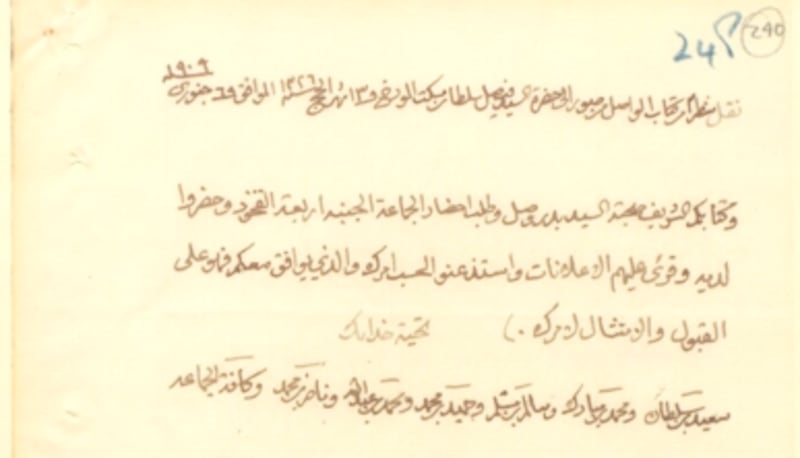 240
248
نقل سطر من كتاب الواصل من صور الى حضرة السيد فيصل سلطان مسكت المورخ ٣ شهر الحج سنة ١٣٢٦ الموافق ٢٩ جنوري ١٩٠٩
وكتابك الشريف صحبة السيد بدر وصل وطلب احضار الجماعة الجنبه اربعة الفخوذ وحضروا
لديه وقرئ عليهم الاعلانات واستذعنوا لحسب امرك والذي يوافق معكم فهو على
القبول والامتثال لامرك . تحية خدامك
سعيد بن سلطان ومحمد بن مبارك وسالم بن وحميد بن محمد ومحمد بن عبدالله وناصر بن محمد وكافة الجماعه